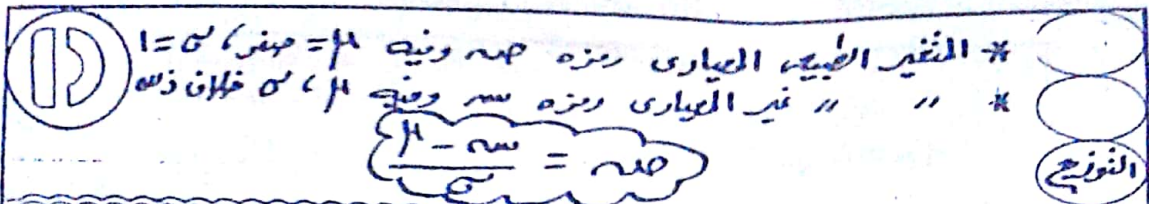 * المتغير الطبيعى المعيارى رمزه صـ وفيه μ = صفر ، σ = ١
* // // غير المعيارى رمزه سـ وفيه μ ، σ خلاف ذلك
صـ = (سـ − μ) / σ
التوزيع